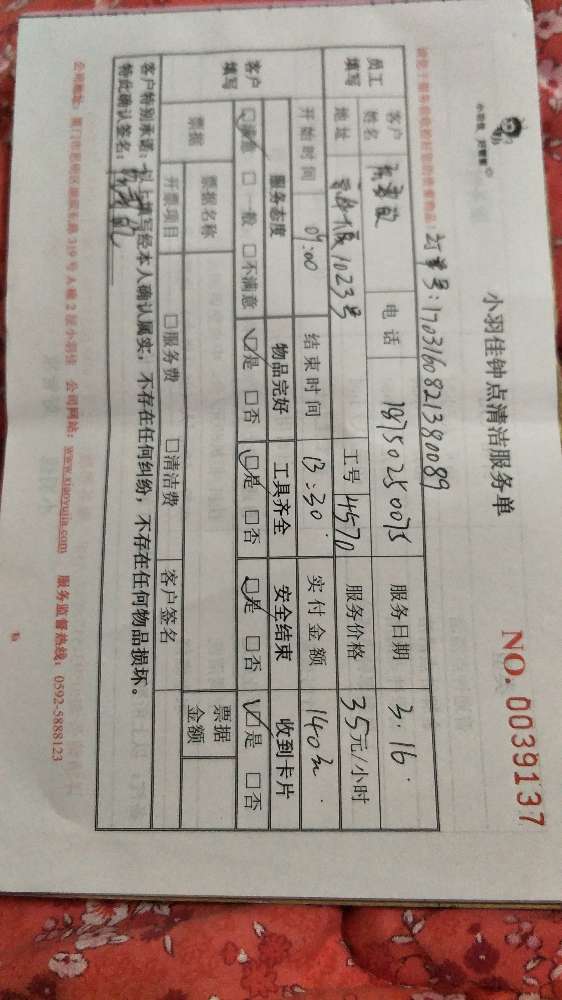 小羽佳 阿管家
小羽佳钟点清洁服务单
NO. 0039137
订单号:1703160821380089
员工填写 客户姓名 电话 服务日期 3.16
地址 1023号 工号 4570 服务价格 35元/小时
开始时间 09:00 结束时间 13:30 实付金额 140元
客户填写 服务态度 物品完好 工具齐全 安全结束 收到卡片
☑满意 □一般 □不满意 ☑是 □否 ☑是 □否 ☑是 □否 ☑是 □否
票据 票据名称 票据金额
开票项目 □服务费 □清洁费 客户签名
客户特别承诺:以上填写经本人确认属实,不存在任何纠纷,不存在任何物品损坏。
特此确认签名:
公司网站:www.xiaoyujia.com 服务监督热线:0592-5888123